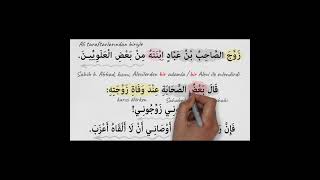 Ali taraftarlarından biriyle
زَوَّجَ الصَّاحِبُ بْنُ عَبَّادٍ اِبْنَتَهُ مِنْ بَعْضِ الْعَلَوِيِّينَ.
Sahib b. Abbad, kızını, Alevilerden bir adamla / bir Alevi ile evlendirdi
قَالَ بَعْضُ الصَّحَابَةِ عِنْدَ وَفَاةِ زَوْجَتِهِ:
زَوِّجُونِي
فَإِنَّ أَوْصَانِي أَنْ لَا أَلْقَاهُ أَعْزَبَ.